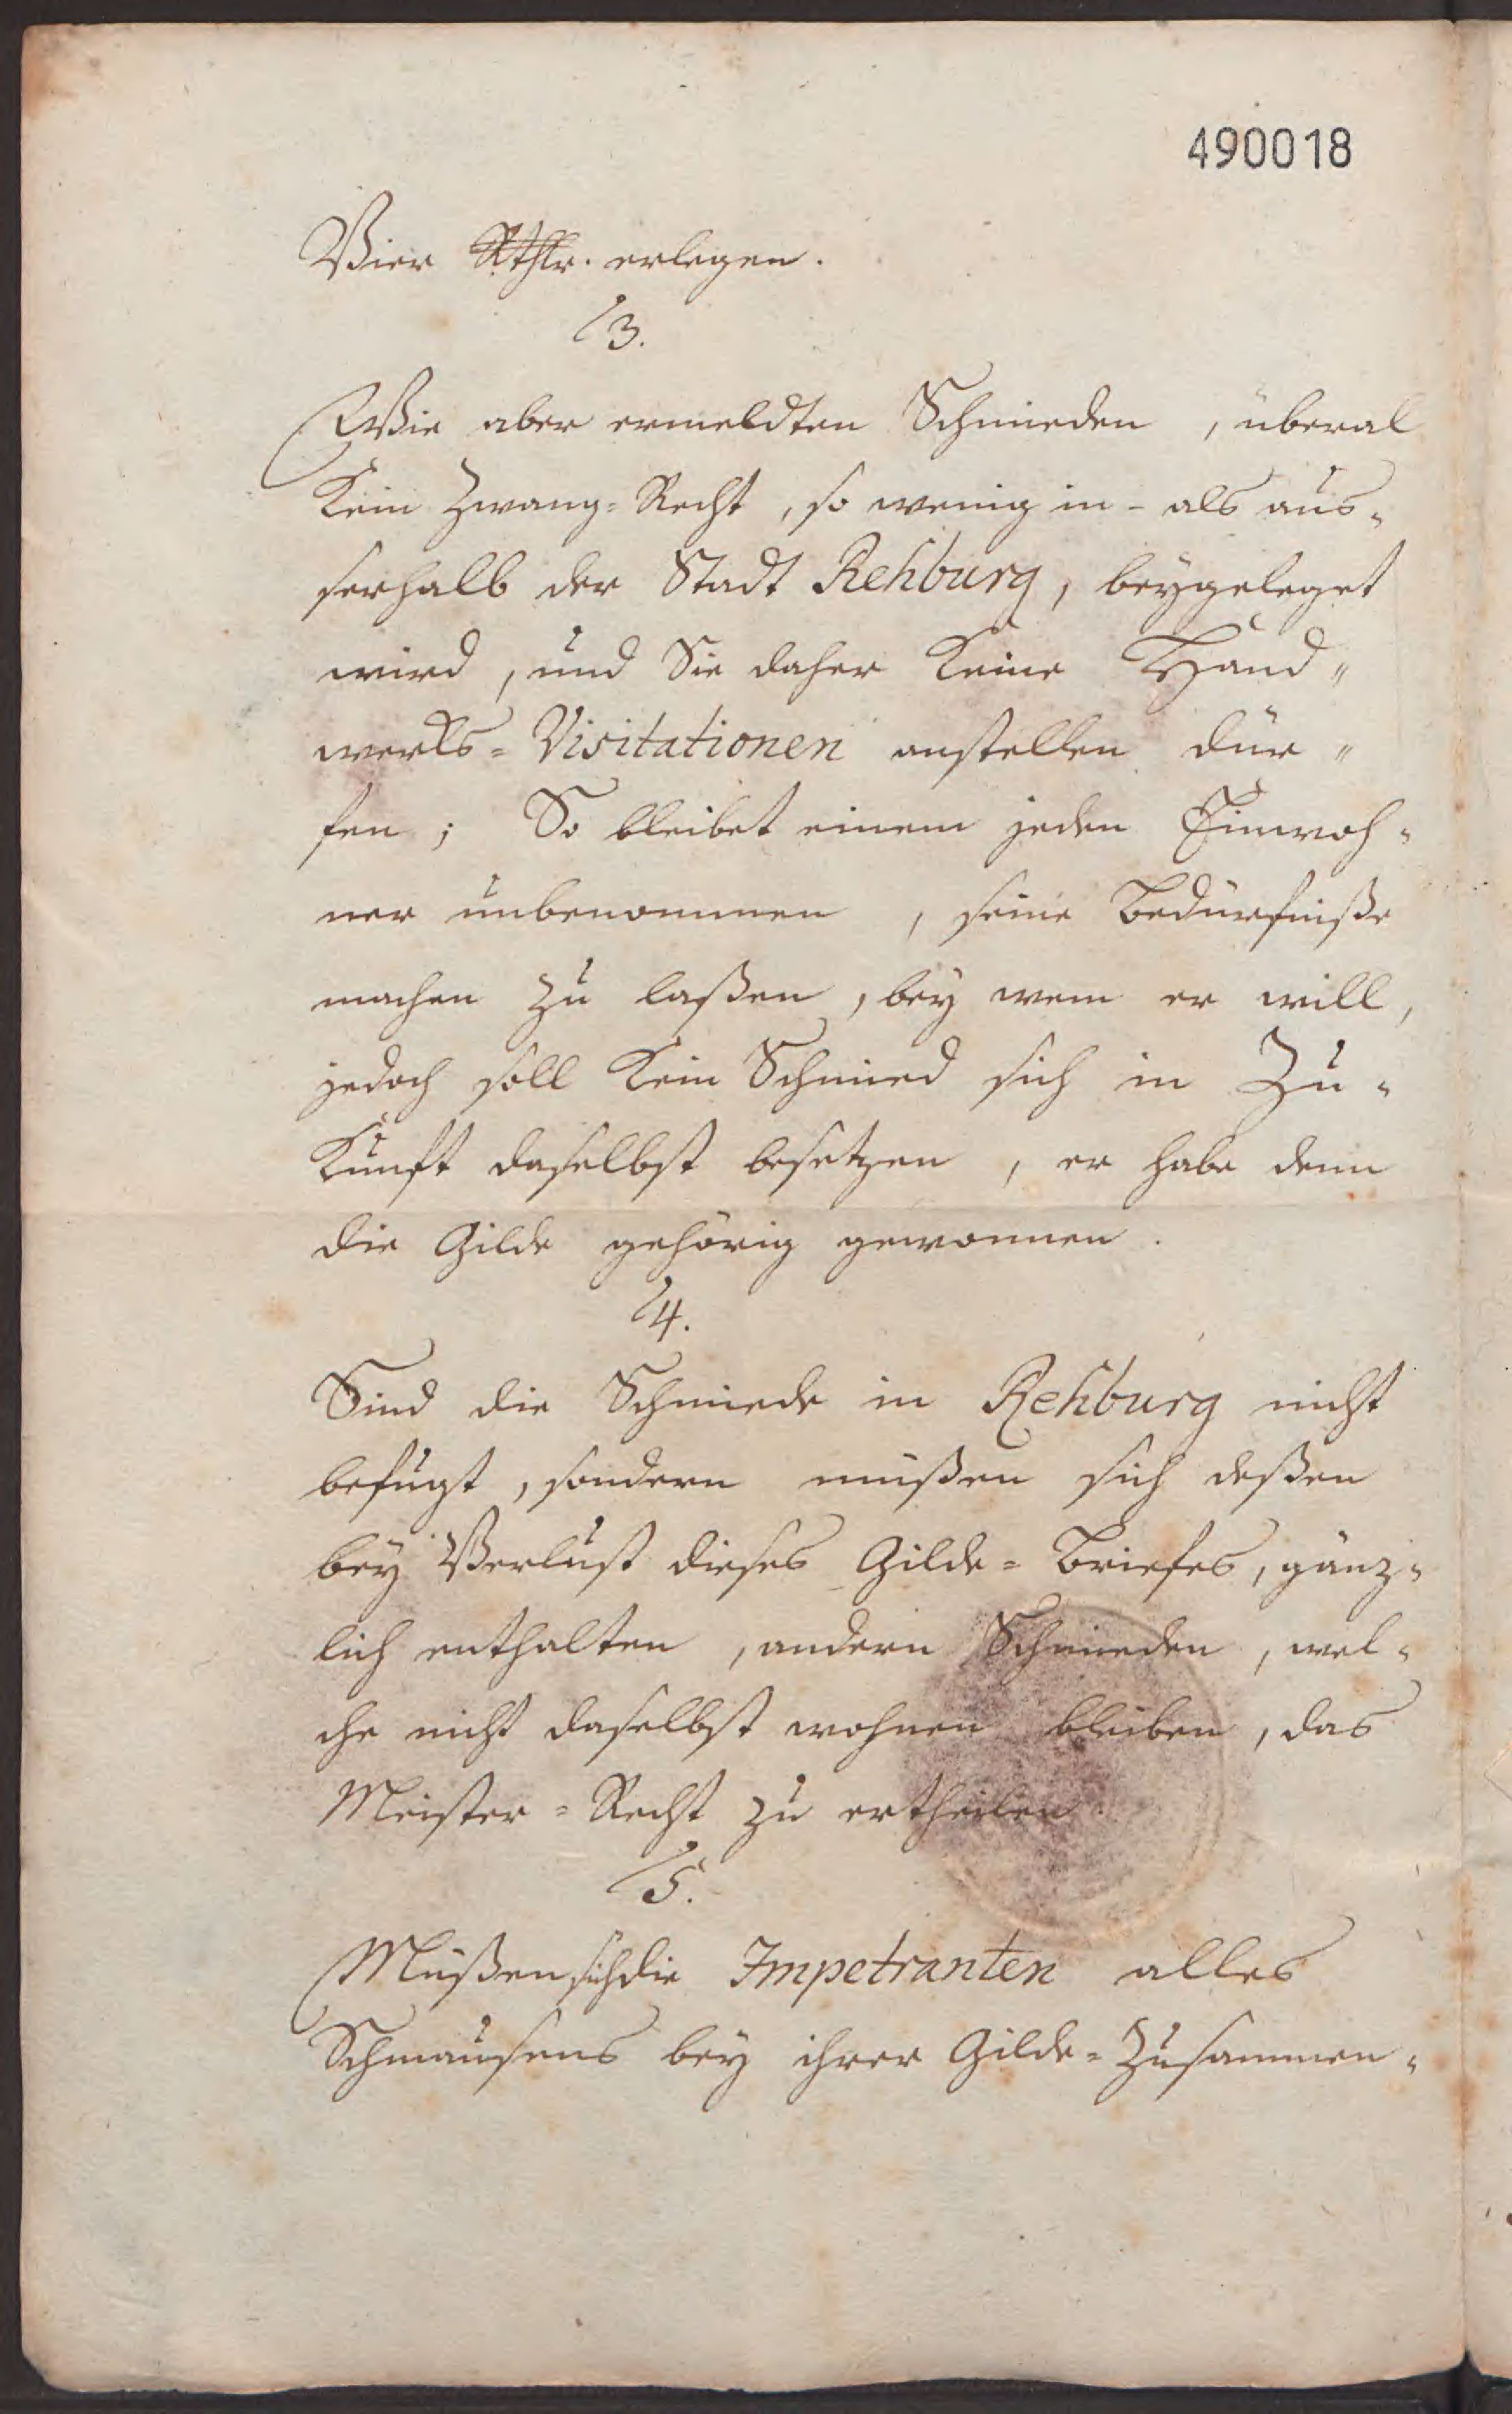 490018
Vier Rthlr. erlegen.
3.
Wie aber ermeldten Schmieden, überal
Kein Zwang=Recht, so wenig in- als aus=
serhalb der Stadt Rehburg, beygeleget
wird, und Sie daher Keine Hand"
werks=Visitationen anstellen dür"
fen; So bleibet einem jeden Einwoh=
ner unbenommen, seine Bedürfniße
machen zu laßen, bey wem er will,
jedoch soll Kein Schmied sich in Zu=
Kunft daselbst besetzen, er habe denn
die Gilde gehörig gewonnen.
4.
Sind die Schmiede in Rehburg nicht
befugt, sondern müßen sich deßen
bey Verlust dieses Gilde=Briefes, gänz=
lich enthalten, andern Schmieden, wel=
che nicht daselbst wohnen bleiben, das
Meister=Recht zu ertheilen.
5.
Müßen sich die Impetranten alles
Schmausens bey ihrer Gilde=Zusammen=